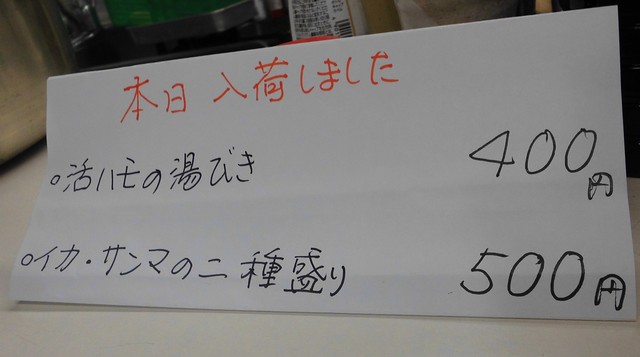 本日入荷しました
○活ハモの湯びき 400円
○イカ・サンマの二種盛り 500円